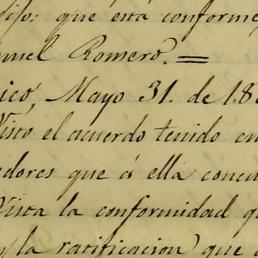 dijo: que está conforme
nuel Romero. =
ico, Mayo 31. de 18
Visto el acuerdo tenido en
dores que á ella concu
Vista la conformidad q
y la ratificacion) que